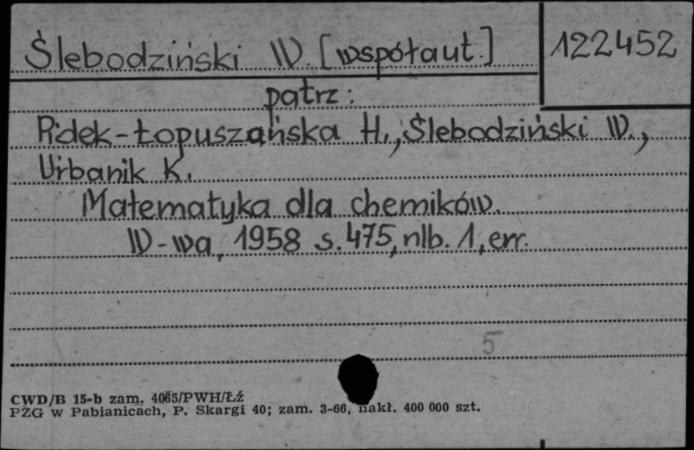 Ślebodziński W. [współaut.]
122452
patrz:
Pidek-Łopuszańska H., Ślebodziński W.,
Urbanik K.
Matematyka dla chemików.
W-wa, 1958 s. 475, nlb. 1, err.
5
CWD/B 15-b zam. 4065/PWH/Łź
PZG w Pabianicach, P. Skargi 40; zam. 3-66, nakł. 400 000 szt.